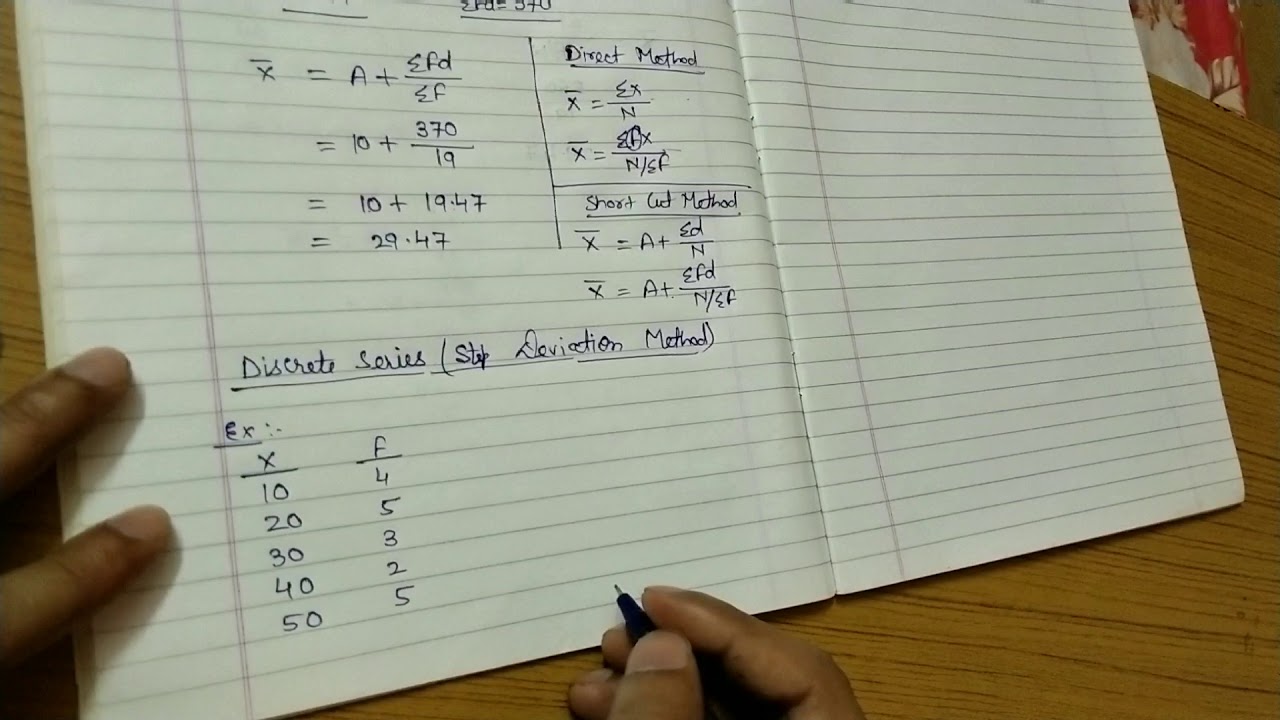 Σfd = 370
x̄ = A + Σfd/Σf
= 10 + 370/19
= 10 + 19.47
= 29.47
Direct Method
x̄ = Σx/N
x̄ = Σfx/N/Σf
Short Cut Method
x̄ = A + Σd/N
x̄ = A + Σfd/N/Σf
Discrete Series (Step Deviation Method)
Ex :-
X f
10 4
20 5
30 3
40 2
50 5